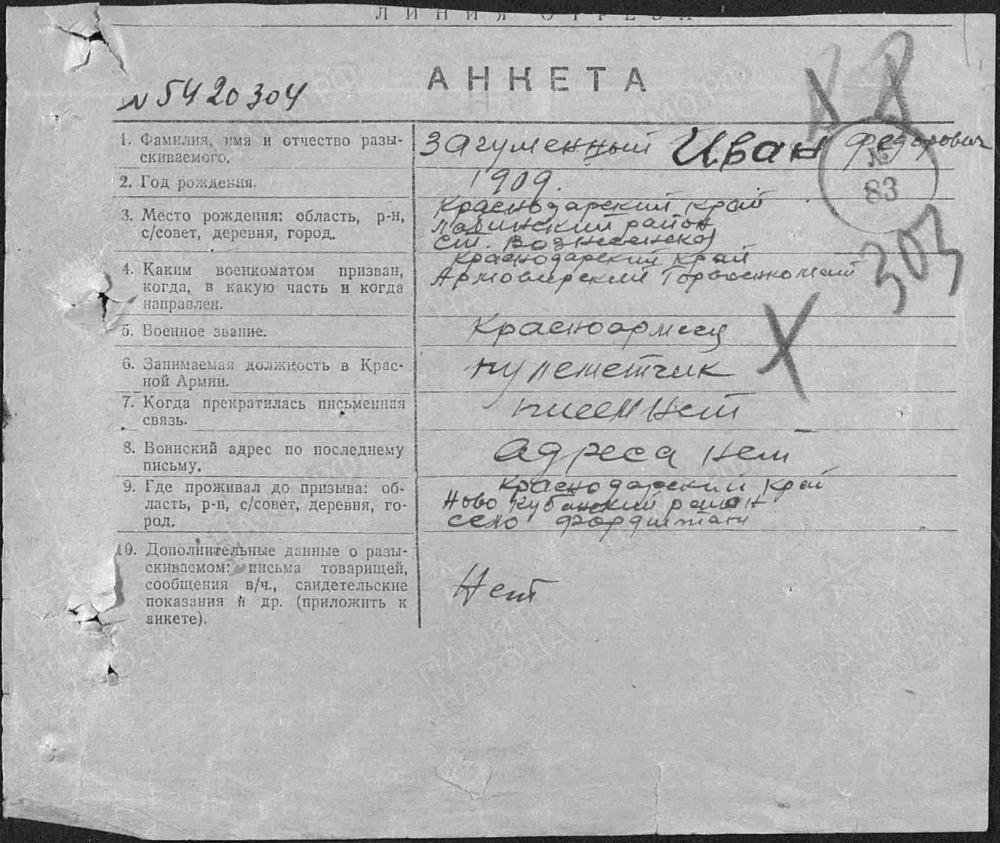 ЛИНИЯ ОТРЕЗА
АНКЕТА
N 5420304
1. Фамилия, имя и отчество разы-
скиваемого.
Загуменный Иван Федорович
2. Год рождения.
1909.
3. Место рождения: область, р-н,
с/совет, деревня, город.
Краснодарский край
Лабинский район
ст. Вознесенской
4. Каким военкоматом призван,
когда, в какую часть и когда
направлен.
Краснодарский край
Армовирский Горвоенкомат
5. Военное звание.
Красноармеец
6. Занимаемая должность в Крас-
ной Армии.
пулеметчик
7. Когда прекратилась письменная
связь.
писем нет
8. Воинский адрес по последнему
письму.
адреса нет
9. Где проживал до призыва: об-
ласть, р-н, с/совет, деревня, го-
род.
Краснодарский край
Ново Кубанский район
село
10. Дополнительные данные о разы-
скиваемом: письма товарищей,
сообщения в/ч., свидетельские
показания и др. (приложить к
анкете).
Нет
№
83
303